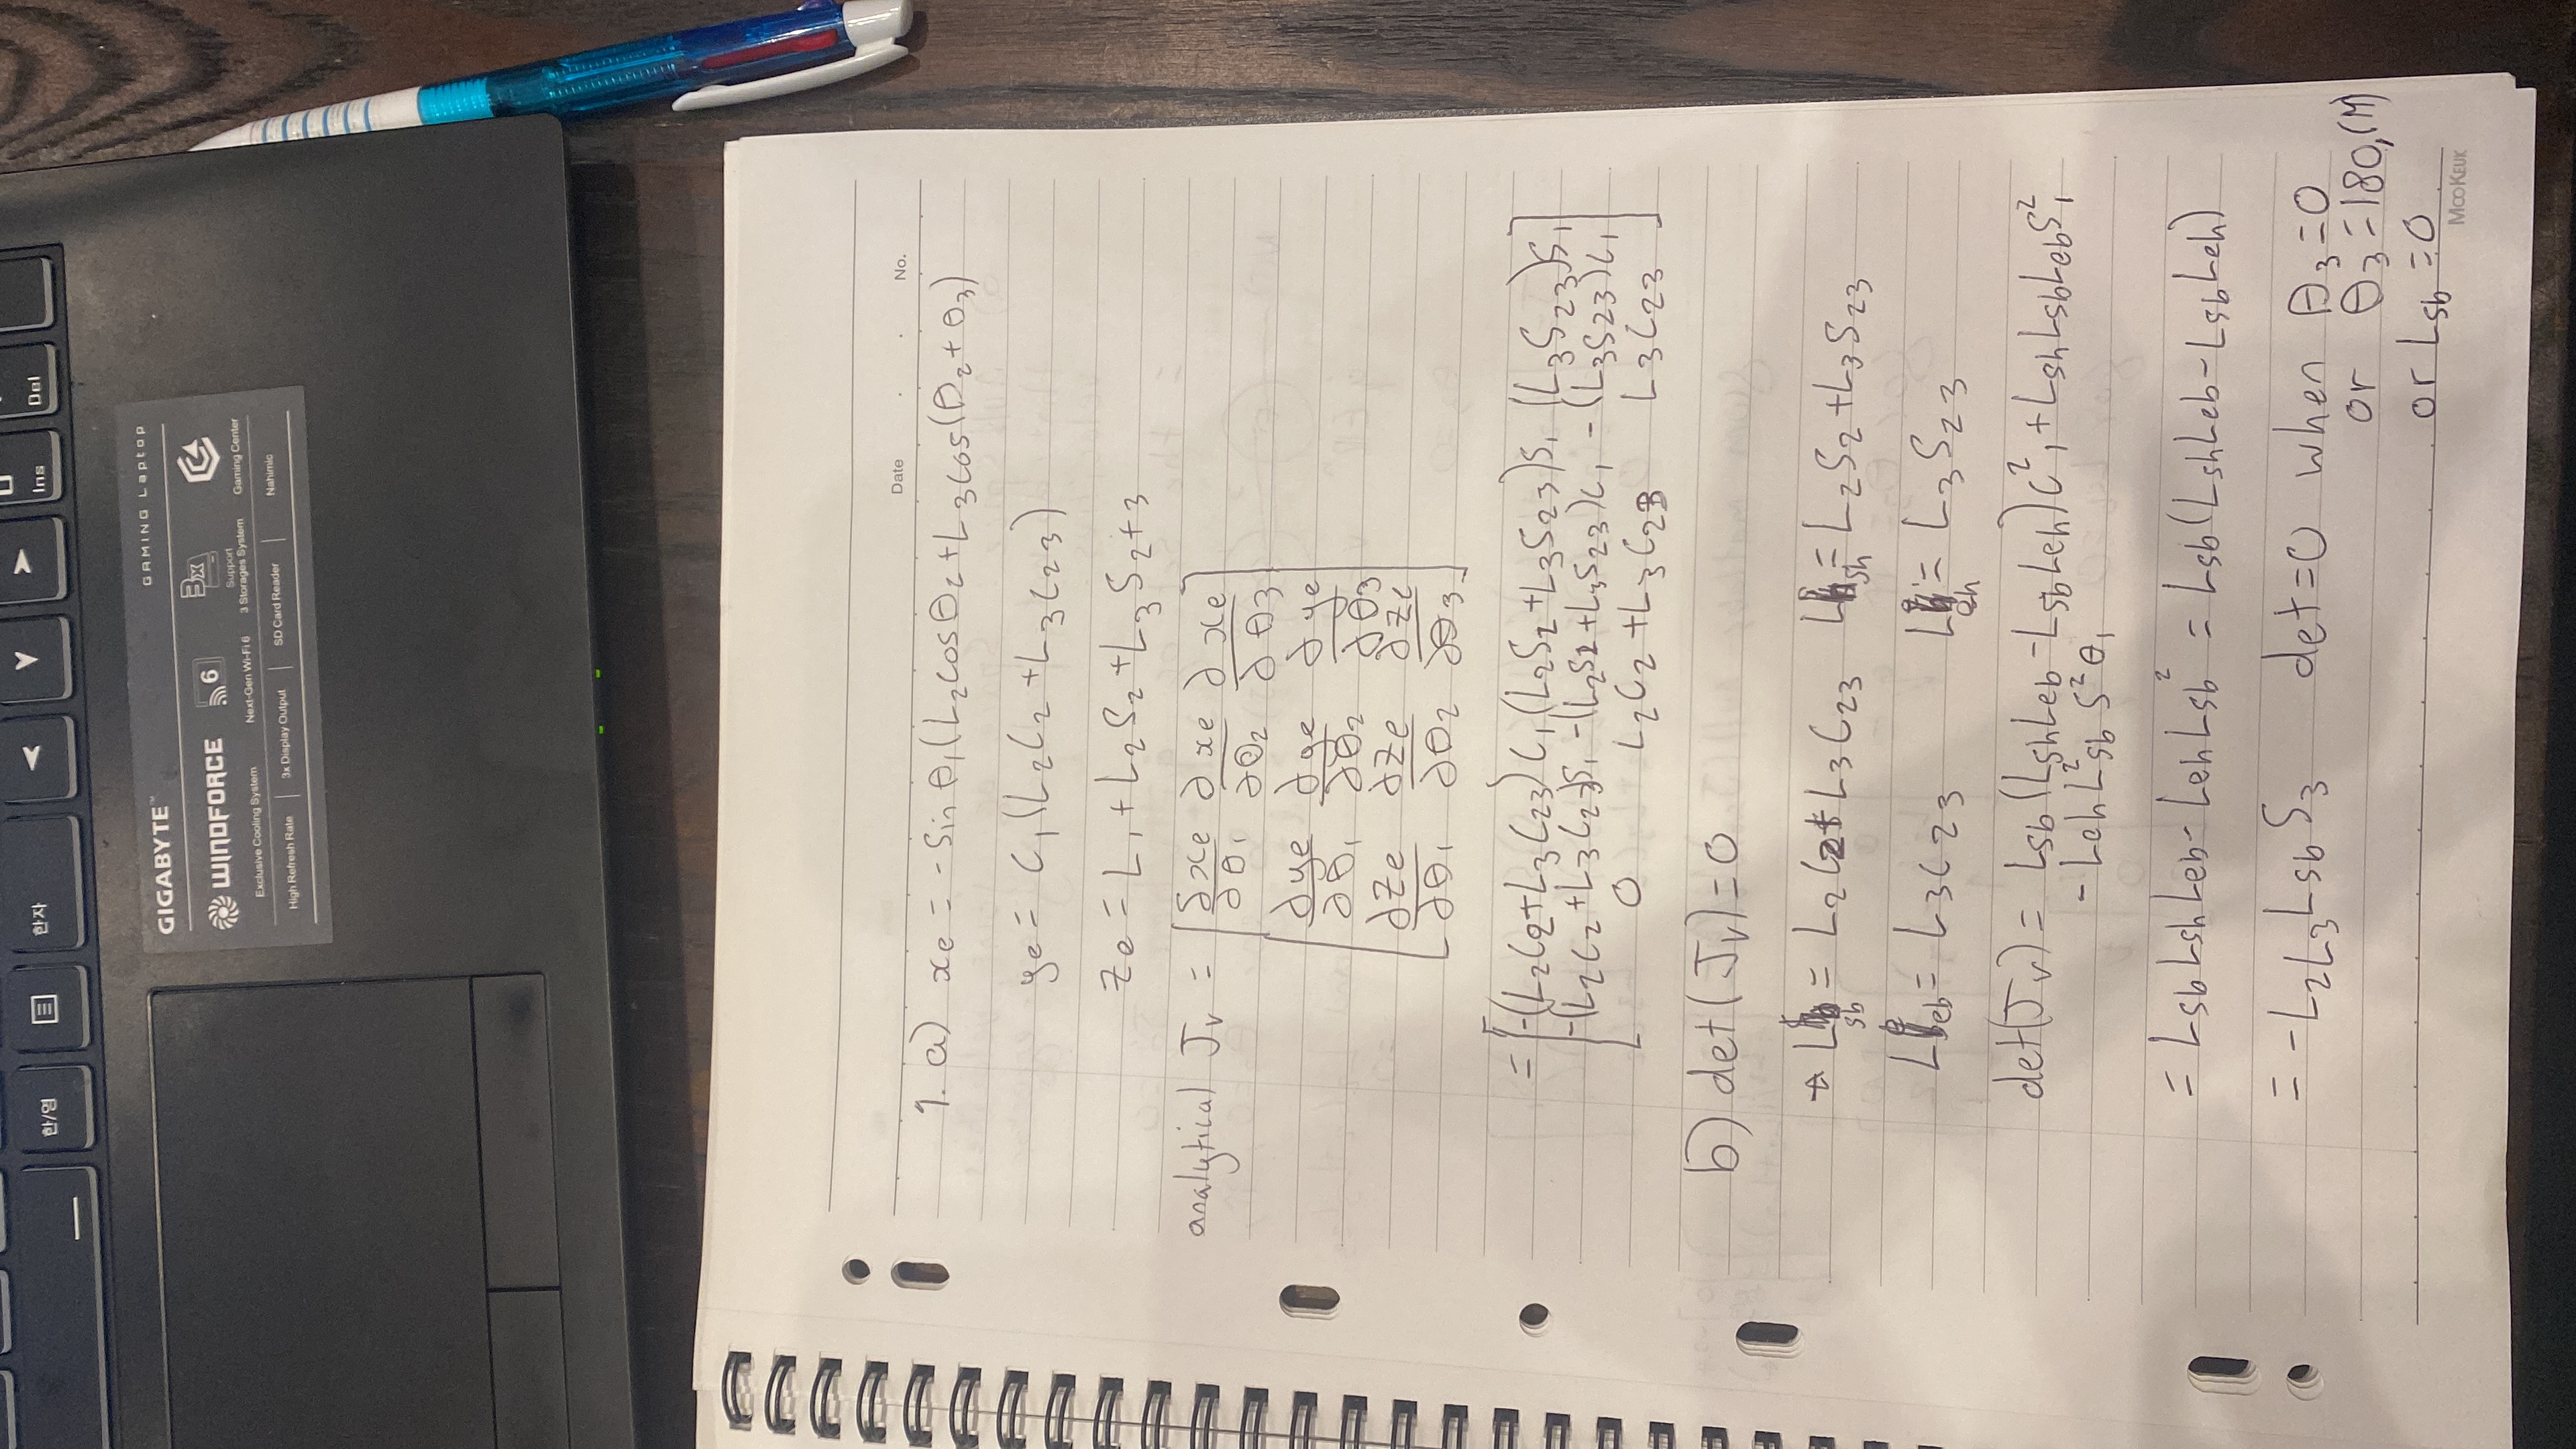 한/영
한자
Ins
Del
GIGABYTE™
GAMING Laptop
WINDFORCE
6
3x
Exclusive Cooling System
Next-Gen Wi-Fi 6
Support
3 Storages System
Gaming Center
High Refresh Rate
3x Display Output
SD Card Reader
Nahimic
Date . . No.
1. a) xe = -Sin θ₁(L₂cosθ₂+L₃cos(θ₂+θ₃)
ye = C₁(L₂C₂+L₃C₂₃)
Ze = L₁+L₂S₂+L₃S₂+₃
analytical Jᵥ = [∂xe/∂θ₁ ∂xe/∂θ₂ ∂xe/∂θ₃]
[∂ye/∂θ₁ ∂ye/∂θ₂ ∂ye/∂θ₃]
[∂Ze/∂θ₁ ∂Ze/∂θ₂ ∂Ze/∂θ₃]
= [-(L₂C₂+L₃C₂₃)C₁ (L₂S₂+L₃S₂₃)S₁ (L₃S₂₃)S₁]
[-(L₂C₂+L₃C₂₃)S₁ -(L₂S₂+L₃S₂₃)C₁ -(L₃S₂₃)C₁]
[0 L₂C₂+L₃C₂₃ L₃C₂₃]
b) det(Jᵥ)=0
→ Lsb = L₂C₂+L₃C₂₃ Lsh = L₂S₂+L₃S₂₃
Leb = L₃C₂₃ Leh = L₃S₂₃
det(Jᵥ) = Lsb(LshLeb-LsbLeh)C²₁+LshLsbLebS²₁
-LehL²sb S²θ₁
= LsbLshLeb-LehLsb² = Lsb(LshLeb-LsbLeh)
= -L₂L₃LsbS₃ det=0 when θ₃=0
or θ₃=180,(π)
or Lsb=0
MOOKEUK